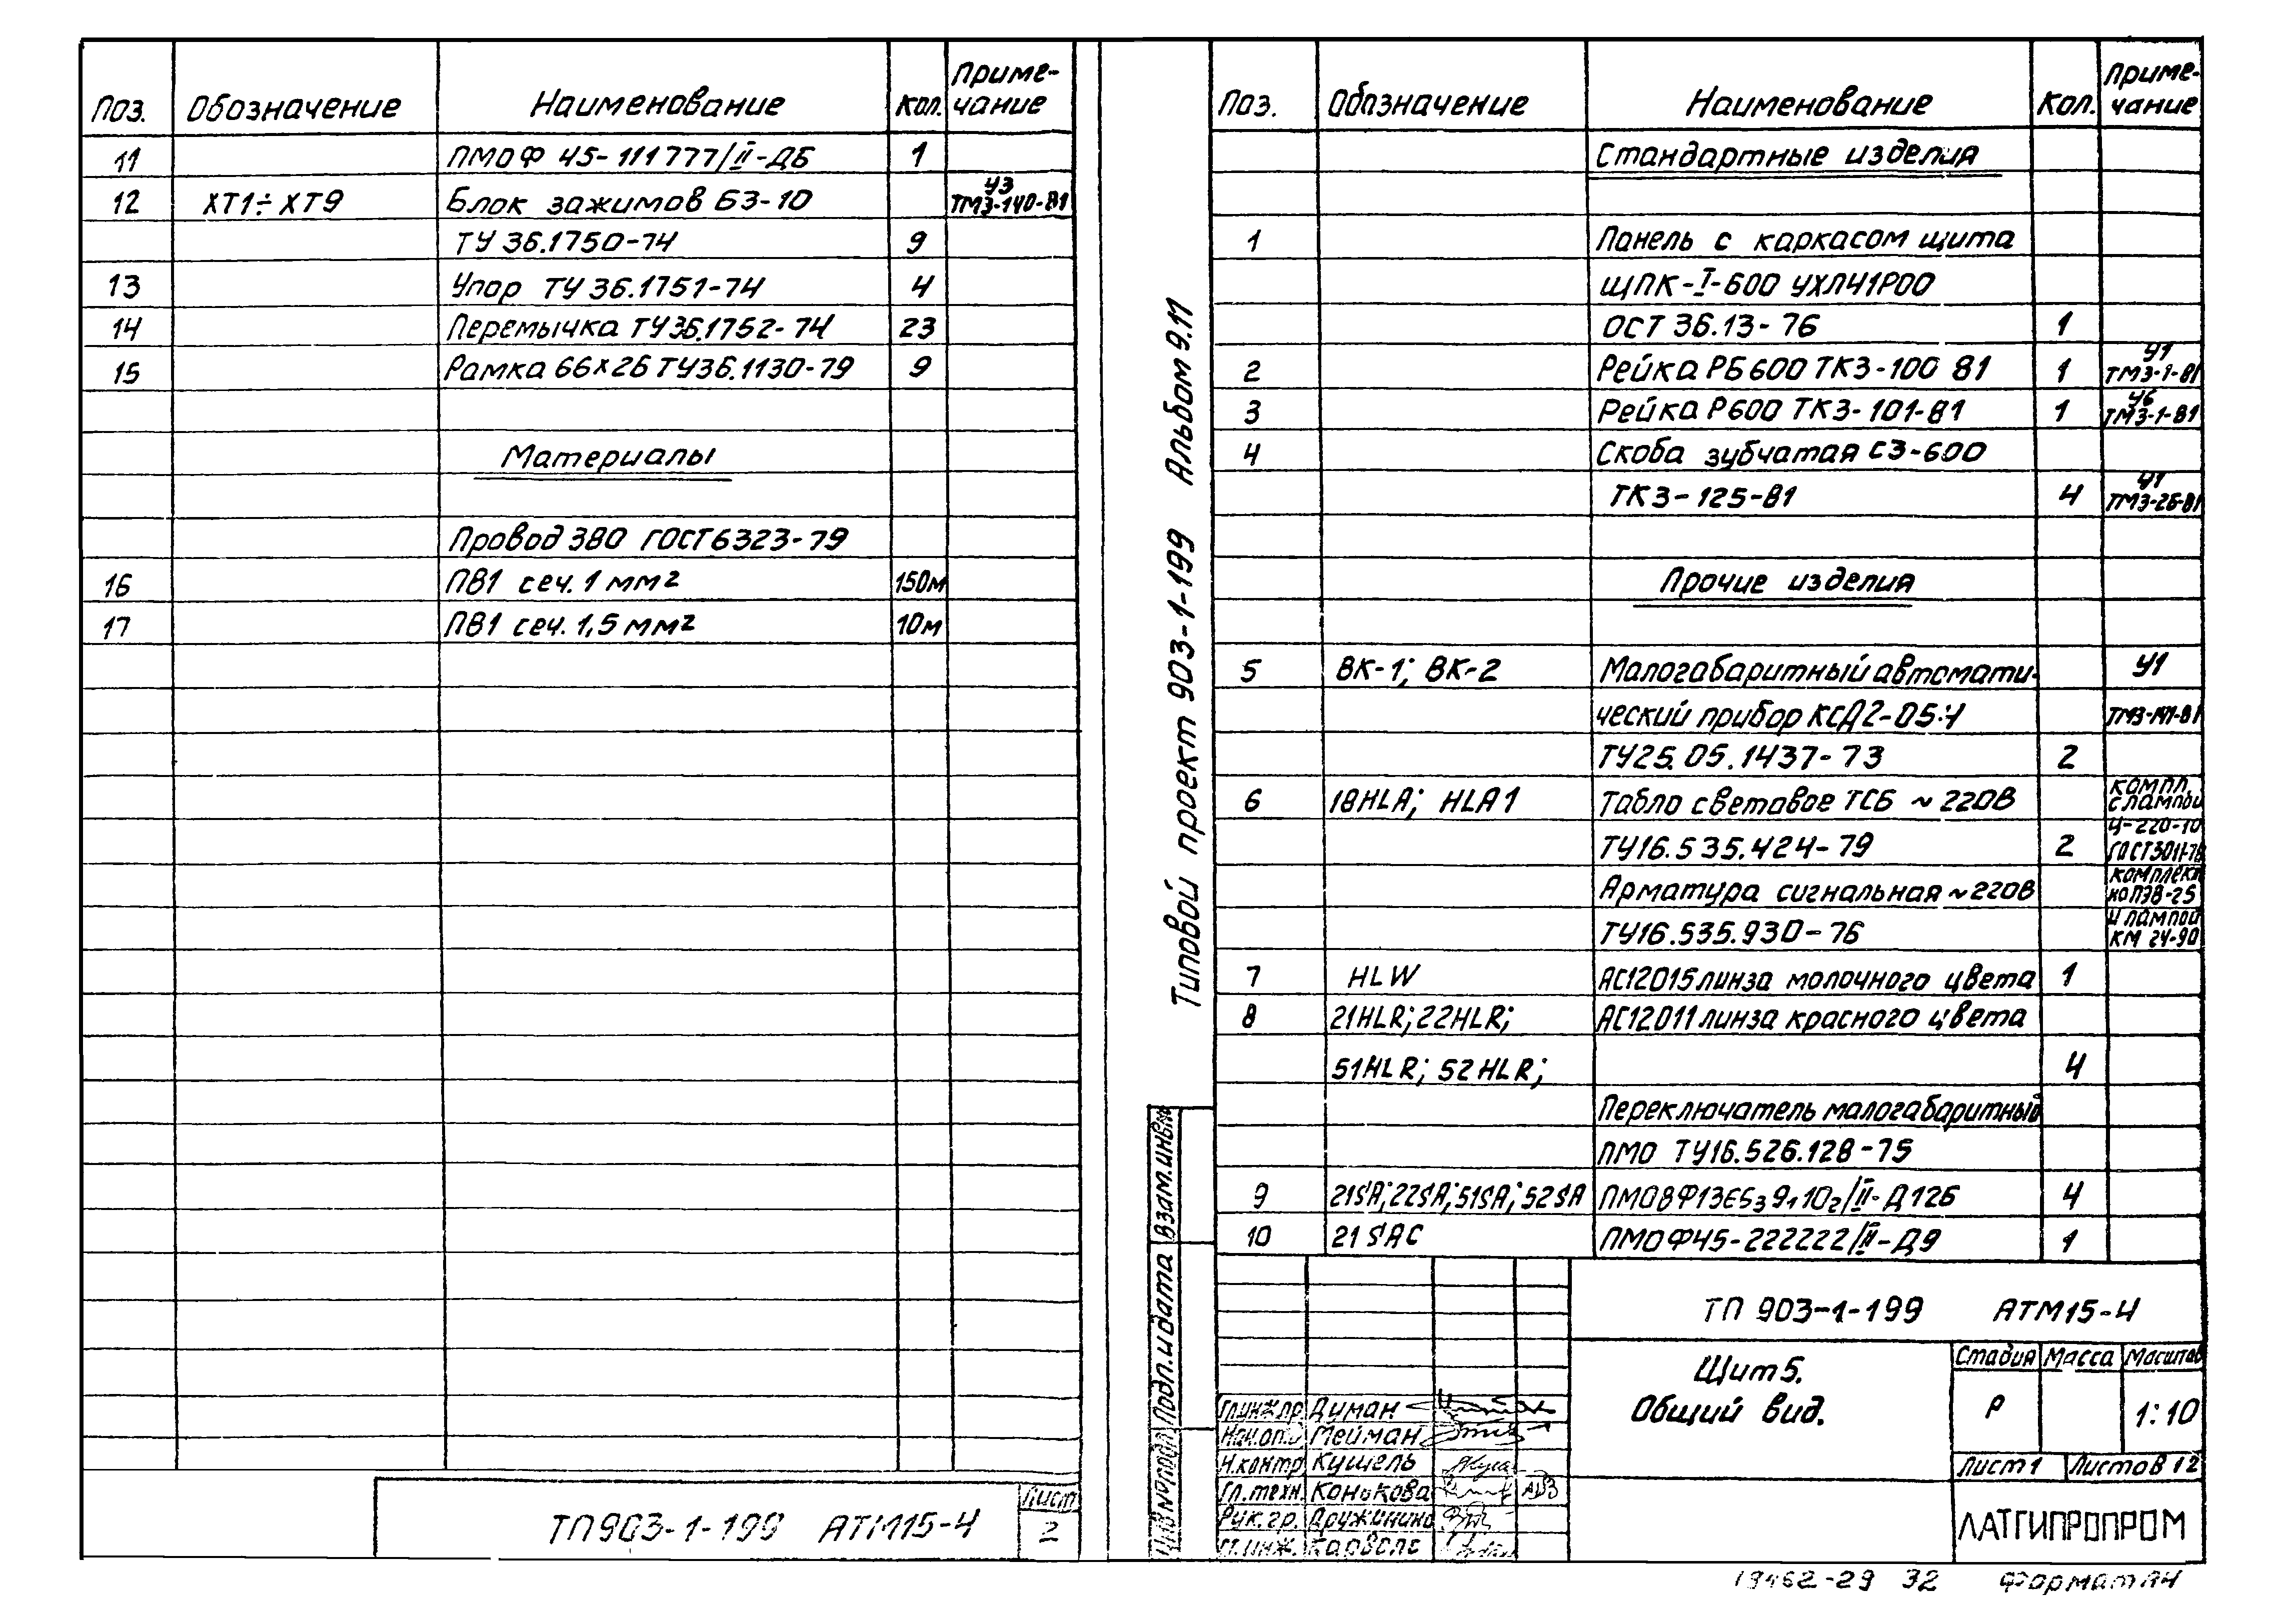 Поз. Обозначение Наименование Кол. Приме-чание
11 ПМОФ 45-111777/II-ДБ 1
12 ХТ1÷ХТ9 Блок зажимов БЗ-10 У3 ТМ3-140-81
ТУ 36.1750-74 9
13 Упор ТУ 36.1751-74 4
14 Перемычка ТУ36.1752-74 23
15 Рамка 66х26 ТУ36.1130-79 9
Материалы
Провод 380 ГОСТ 6323-79
16 ПВ1 сеч. 1 мм² 150м
17 ПВ1 сеч. 1,5 мм² 10м
ТП 903-1-199 АТМ15-4
Лист
2
Типовой проект 903-1-199 Альбом 9.11
Взам.инв.№
Подп. и дата
Инв №подл.
Поз. Обозначение Наименование Кол. Приме-чание
Стандартные изделия
1 Панель с каркасом щита
ЩПК-I-600 УХЛ41Р00
ОСТ 36.13-76 1
2 Рейка РБ600 ТК3-100 81 1 У1 ТМ3-1-81
3 Рейка Р600 ТК3-101-81 1 У6 ТМ3-1-81
4 Скоба зубчатая СЗ-600
ТК3-125-81 4 У1 ТМ3-26-81
Прочие изделия
5 ВК-1; ВК-2 Малогабаритный автомати- У1
ческий прибор КСД2-05.4 ТМ3-141-81
ТУ25.05.1437-73 2
6 18HLA; HLA1 Табло световое ТСБ ~220В компл. с лампой
ТУ16.535.424-79 2 Ц-220-10 ГОСТ5011-78
Арматура сигнальная ~220В комплект но ПЭВ-25
ТУ16.535.930-76 и лампой КМ 24-90
7 HLW АС12015 линза молочного цвета 1
8 21HLR; 22HLR; АС12011 линза красного цвета
51HLR; 52HLR; 4
Переключатель малогабаритный
ПМО ТУ16.526.128-75
9 21SA; 22SA; 51SA; 52SA ПМОВФ13Е5₃9₁10₂/II-Д126 4
10 21SAC ПМОФ45-222222/II-Д9 1
ТП 903-1-199 АТМ15-4
Щит 5.
Общий вид.
Стадия Масса Масштаб
Р 1:10
Лист 1 Листов 12
ЛАТГИПРОПРОМ
Гл.инж.пр Думан
Нач.отд Мейман
Н.контр Кушель
Гл.техн. Конюкова
Рук.гр. Дружинина
Ст.инж. Карвеле
19462-29 32 Формат А4